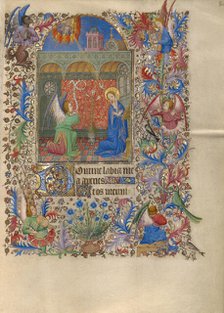 Domine labia mea
aperies
et os meum